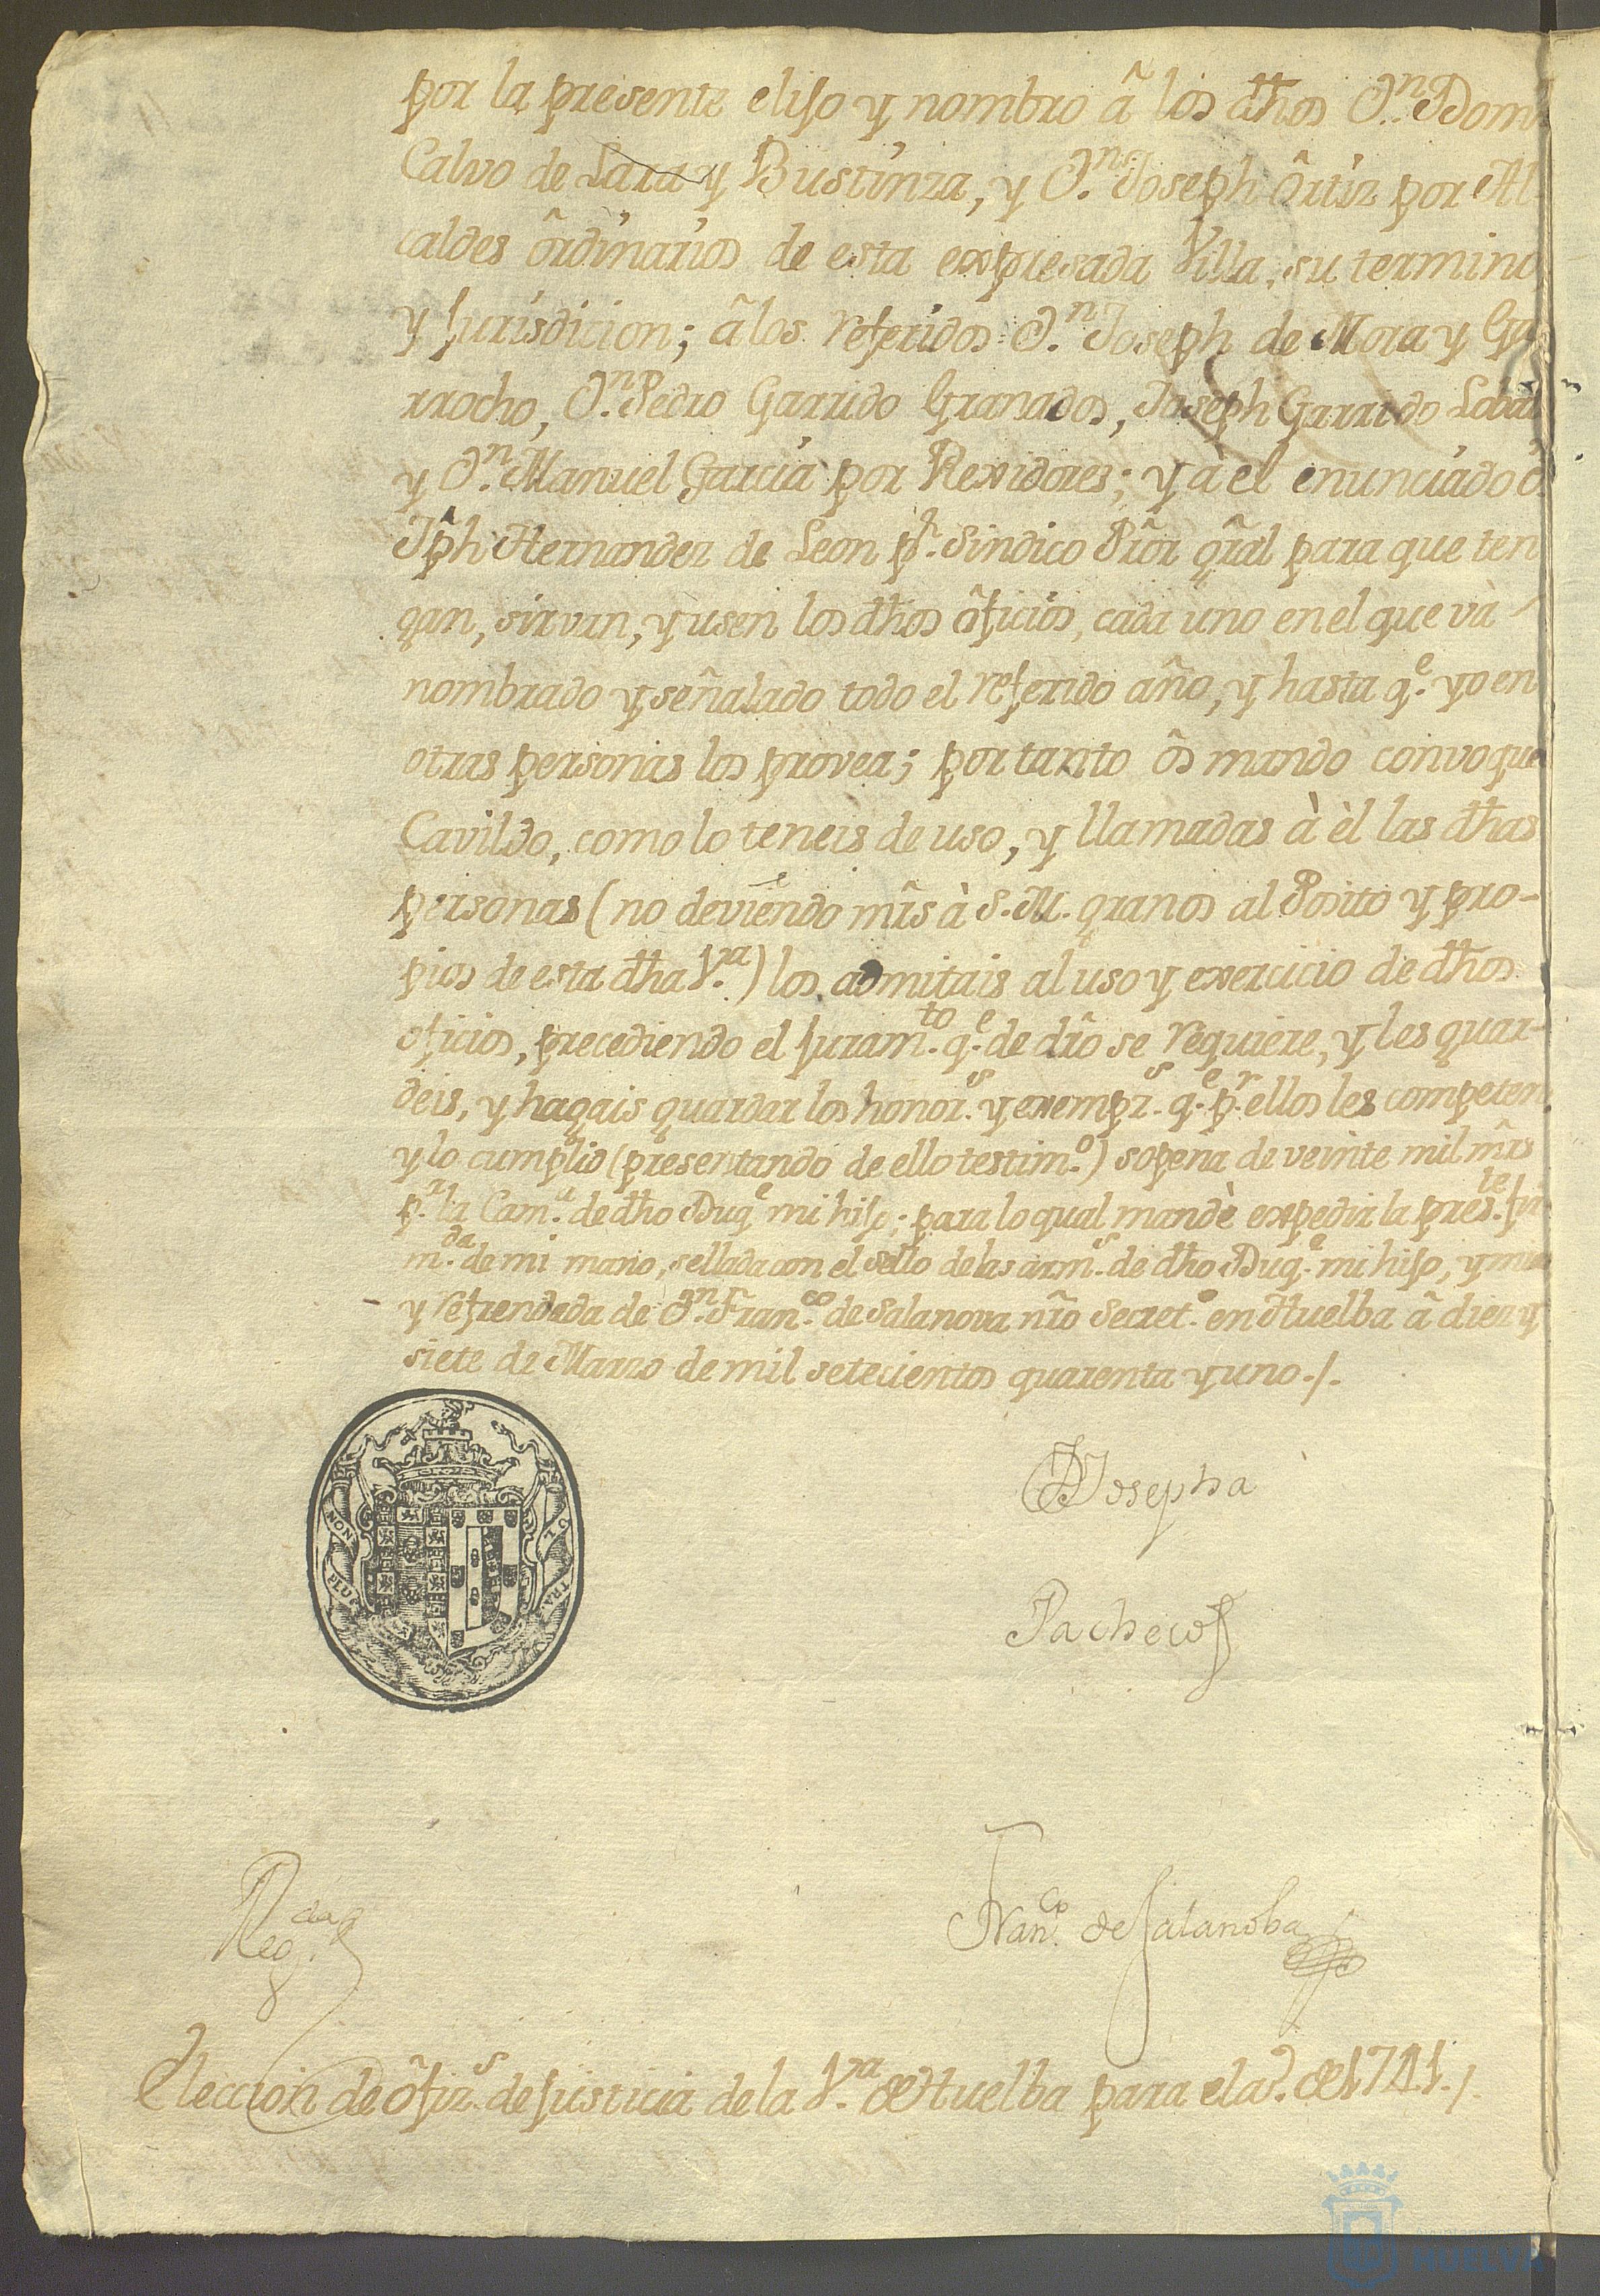 por la presente elijo y nombro â los dhos Dn. Dom
Calvo de Lara y Bustinza, y Dn. Joseph Ôrtiz por Al
caldes ôrdinarios de esta expresada Villa, su termino
y Jurisdicion; â los referidos Dn. Joseph de Mora y Ga
rrocho, Dn. Pedro Garrido Granados, Joseph Garrido Lobo
y Dn. Manuel Garcia por Rexidores; y à el enunciado D
Jph Hernandez de Leon pr. Sindico Pror gral para que ten
gan, sirvan, y usen los dhos ôficios, cada uno en el que và
nombrado y señalado todo el referido año, y hasta qe. yo en
otras personas los provea; por tanto ôs mando convoque
Cavildo, como lo teneis de uso, y llamadas à èl las dhas
personas (no deviendo mrs à S. M. granos al Posito y pro-
pios de esta dha Va.) los admitais al uso y exercicio de dhos
oficios, precediendo el juramto. qe. de dro se requiere, y les guar-
deis, y hagais guardar los honors. y exempzs. qe. pr. ellos les competen
y lo cumplid (presentando de ello testimo.) sopena de veinte mil mrs
pa. la Cama. de dho Duqe mi hijo; para lo qual mandè expedir la preste. fir
mda. de mi mano, sellada con el sello de las arms. de dho Duqe. mi hijo, y mio
y refrendada de Dn. Franco. de Salanova nro Secreto. en Huelba â diez y
siete de Marzo de mil setecientos quarenta y uno./.
NON
PLUS
UL
TRA
Josepha
Pacheco
Regda.
Franco. de Salanoba
Eleccion de ôfizs. de justicia de la Va. de Huelba para el a. de 1741./.
HUELVA